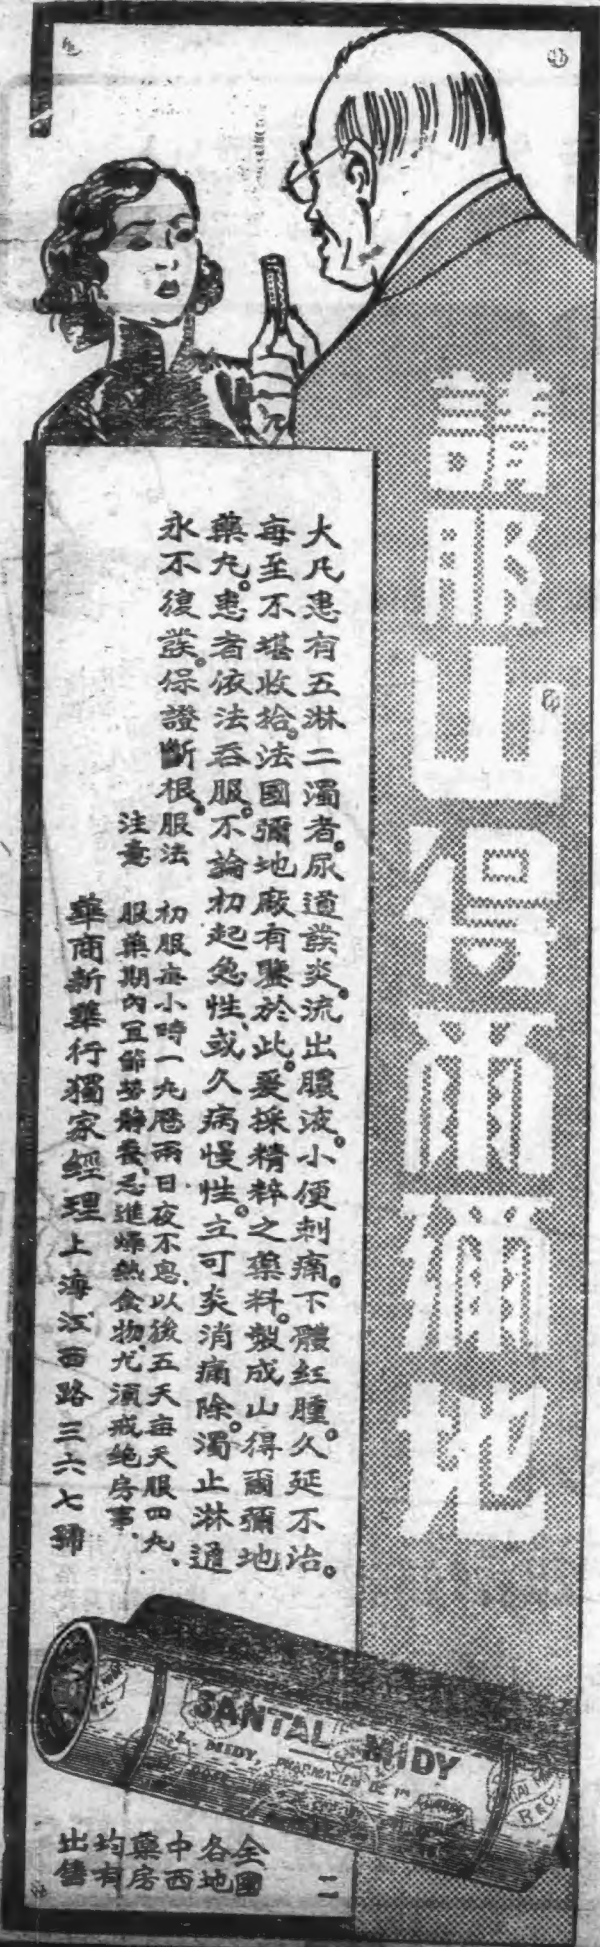 請服山得爾彌地
大凡患有五淋二濁者。尿道發炎。流出膿液。小便刺痛。下體紅腫。久延不治。
每至不堪收拾。法國彌地廠有鑒於此。爰採精粹之藥料。製成山得爾彌地
藥丸。患者依法吞服。不論初起急性、或久病慢性。立可炎消痛除。濁止淋通
永不復發。保證斷根。服法
初服每小時一丸歷兩日夜不息、以後五天每天服四丸、
注意
服藥期內宜節勞靜養、忌進燥熱食物、尤須戒絕房事、
華商新藥行獨家經理
上海江西路三六七號
SANTAL MIDY
L. MIDY, PHARMACIEN DE 1re
全國
各地
中西
藥房
均有
出售
二